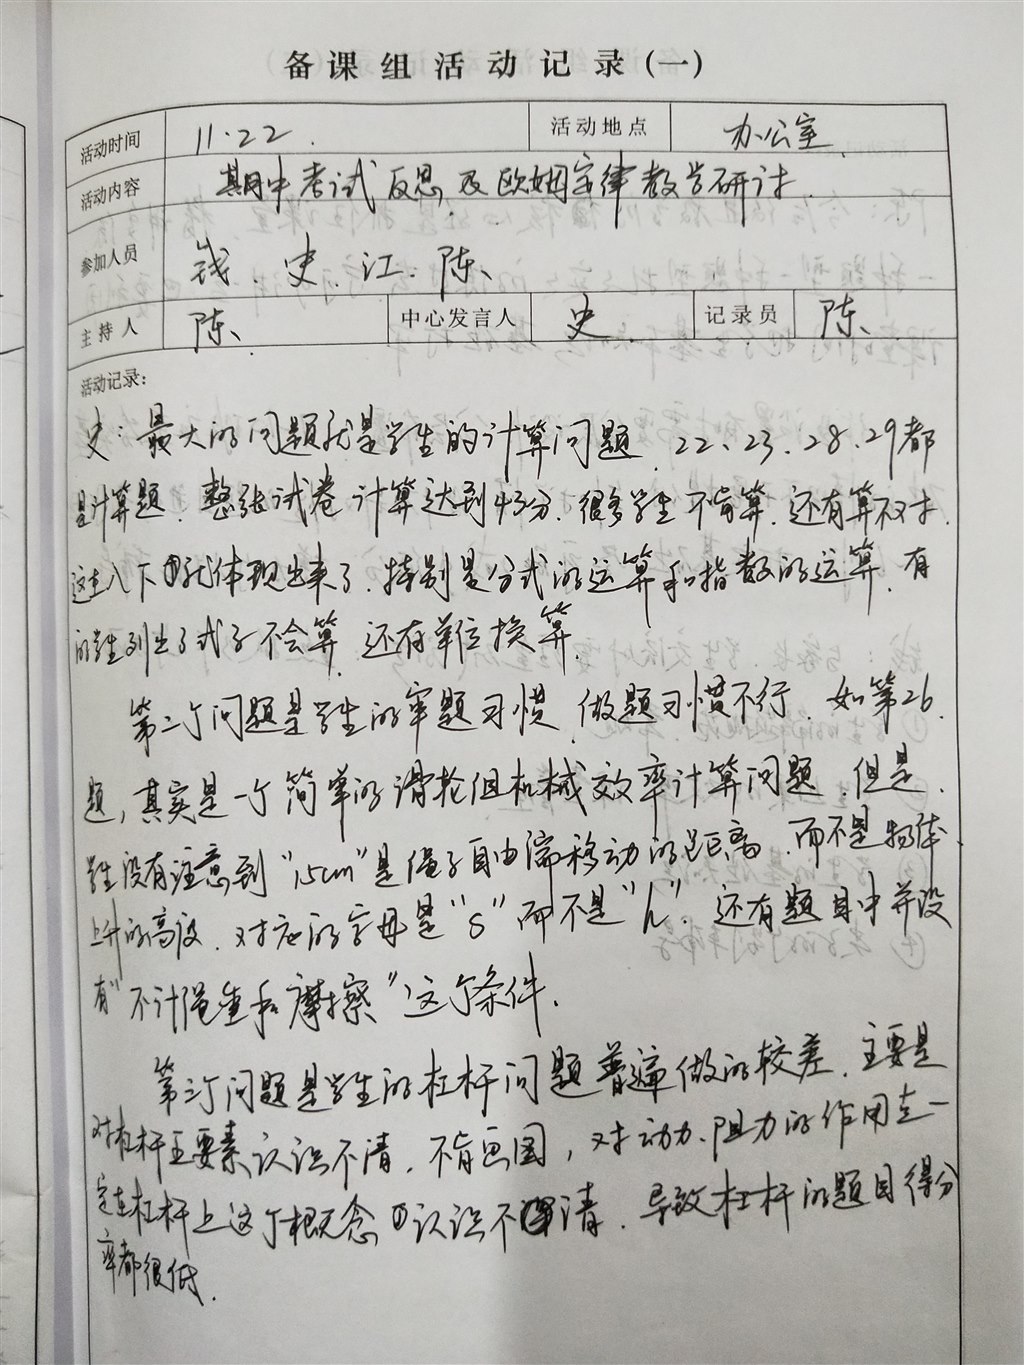 备课组活动记录(一)
活动时间 11.22. 活动地点 办公室
活动内容 期中考试反思及欧姆定律教学研讨.
参加人员 钱.史.江.陈、
主持人 陈、 中心发言人 史 记录员 陈、
活动记录:
史:最大的问题就是学生的计算问题.22、23、28、29都
是计算题.整张试卷计算达到43分.很多学生不肯算.还有算不对.
这一下就体现出来了.特别是分式的运算和指数的运算.有
的学生列出了式子不会算.还有单位换算.
第二个问题是学生的审题习惯、做题习惯不行.如第26.
题,其实是一个简单的滑轮组机械效率计算问题.但是、
学生没有注意到"15cm"是绳子自由端移动的距离、而不是物体
上升的高度.对应的字母是"S"而不是"h".还有题目中并没
有"不计绳重和摩擦"这个条件.
第三个问题是学生的杠杆问题普遍做的较差.主要是
对杠杆五要素认识不清.不肯画图,对动力、阻力的作用点一
定在杠杆上这个概念认识不清.导致杠杆的题目得分
率都很低.